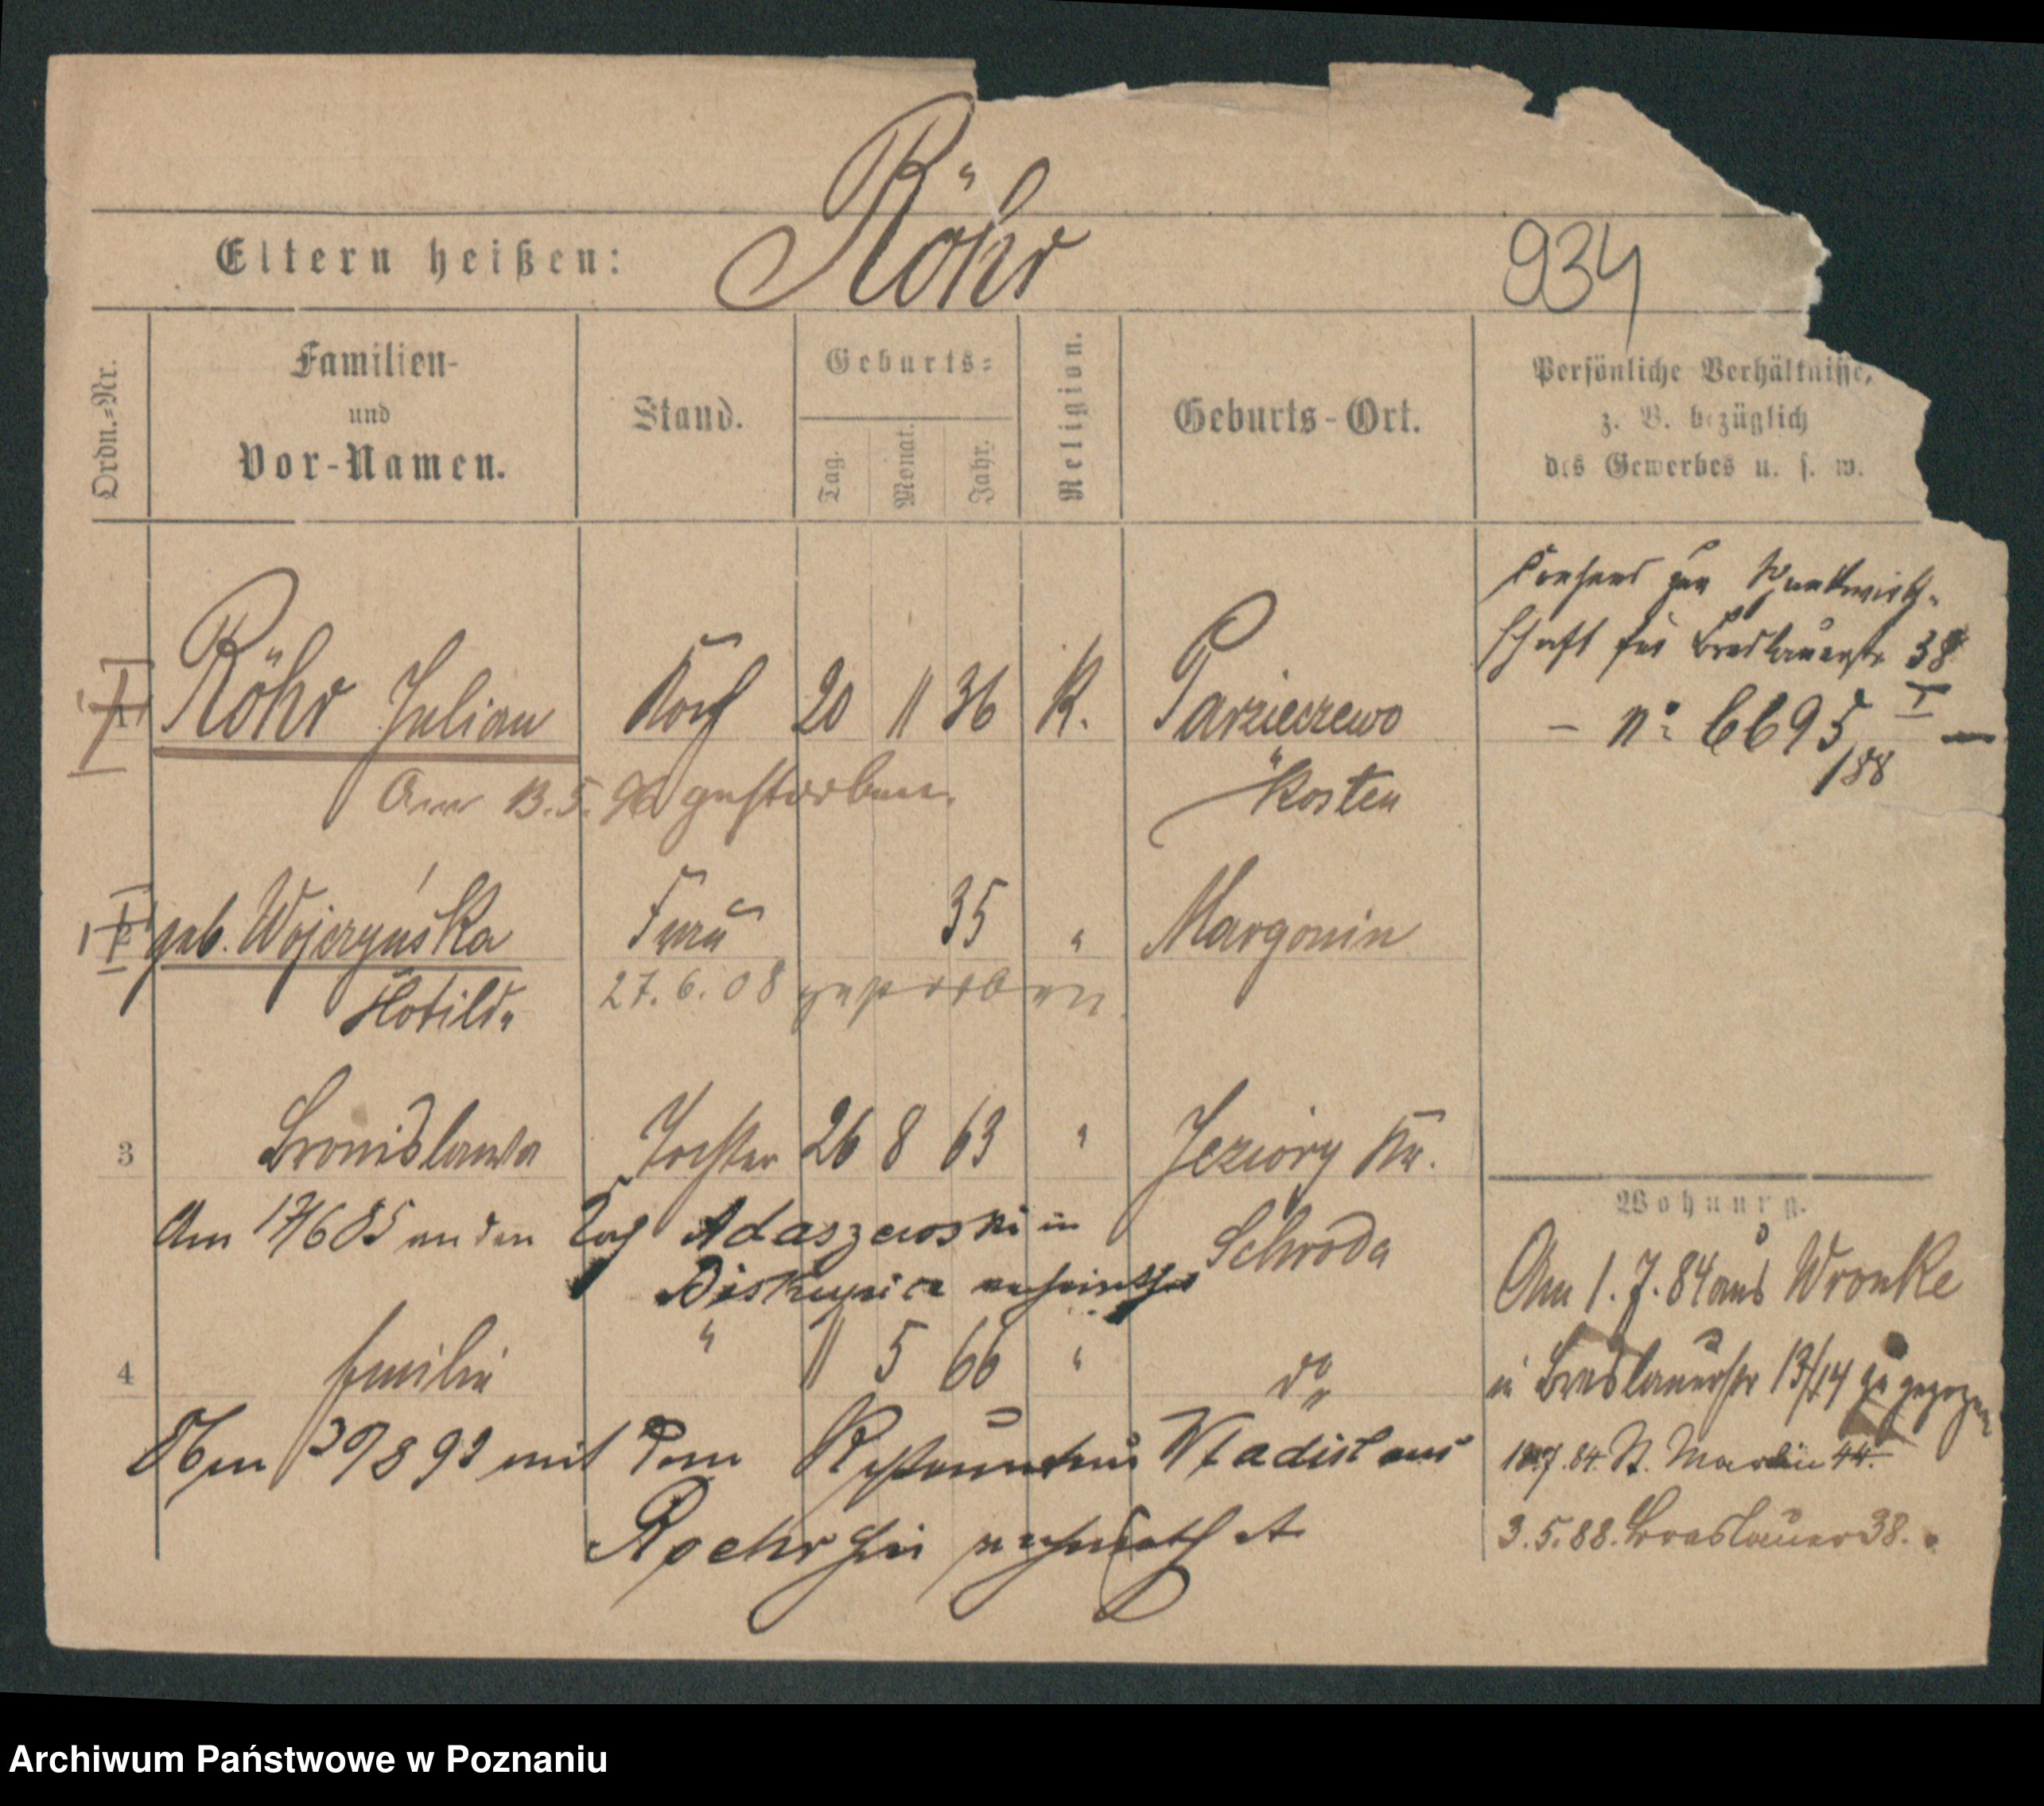 Röhr
Eltern heißen:
934
Ordn.-Nr.
Familien-
und
Vor-Namen.
Stand.
Geburts-
Tag.
Monat.
Jahr.
Religion.
Geburts-Ort.
Persönliche Verhältnisse,
z. B. bezüglich
des Gewerbes u. s. w.
Consens zur
schaft für Breslauerstr 38
– No 6695 –
/88
1 Röhr Julian Koch 20 11 36 K. Parzieczewo
Am 13.5. gestorben. Kosten
2 geb. Wojczyńska Frau 35 " Margonin
27.6.08 gestorben
3 Bronislawa Tochter 26 8 63 " Jeziory Kr.
Schroda
Am 17/6 85 an den Adaszewski in
Biskupice
4 Emilie " 11 5 66 " do
mit dem Wladislaus
Roehr
Wohnung.
Am 1.7.84 aus Wronke
in Breslauerstr 13/14 zugezogen
84. St. Martin 44.
3.5.88. Breslauer 38.
Archiwum Państwowe w Poznaniu